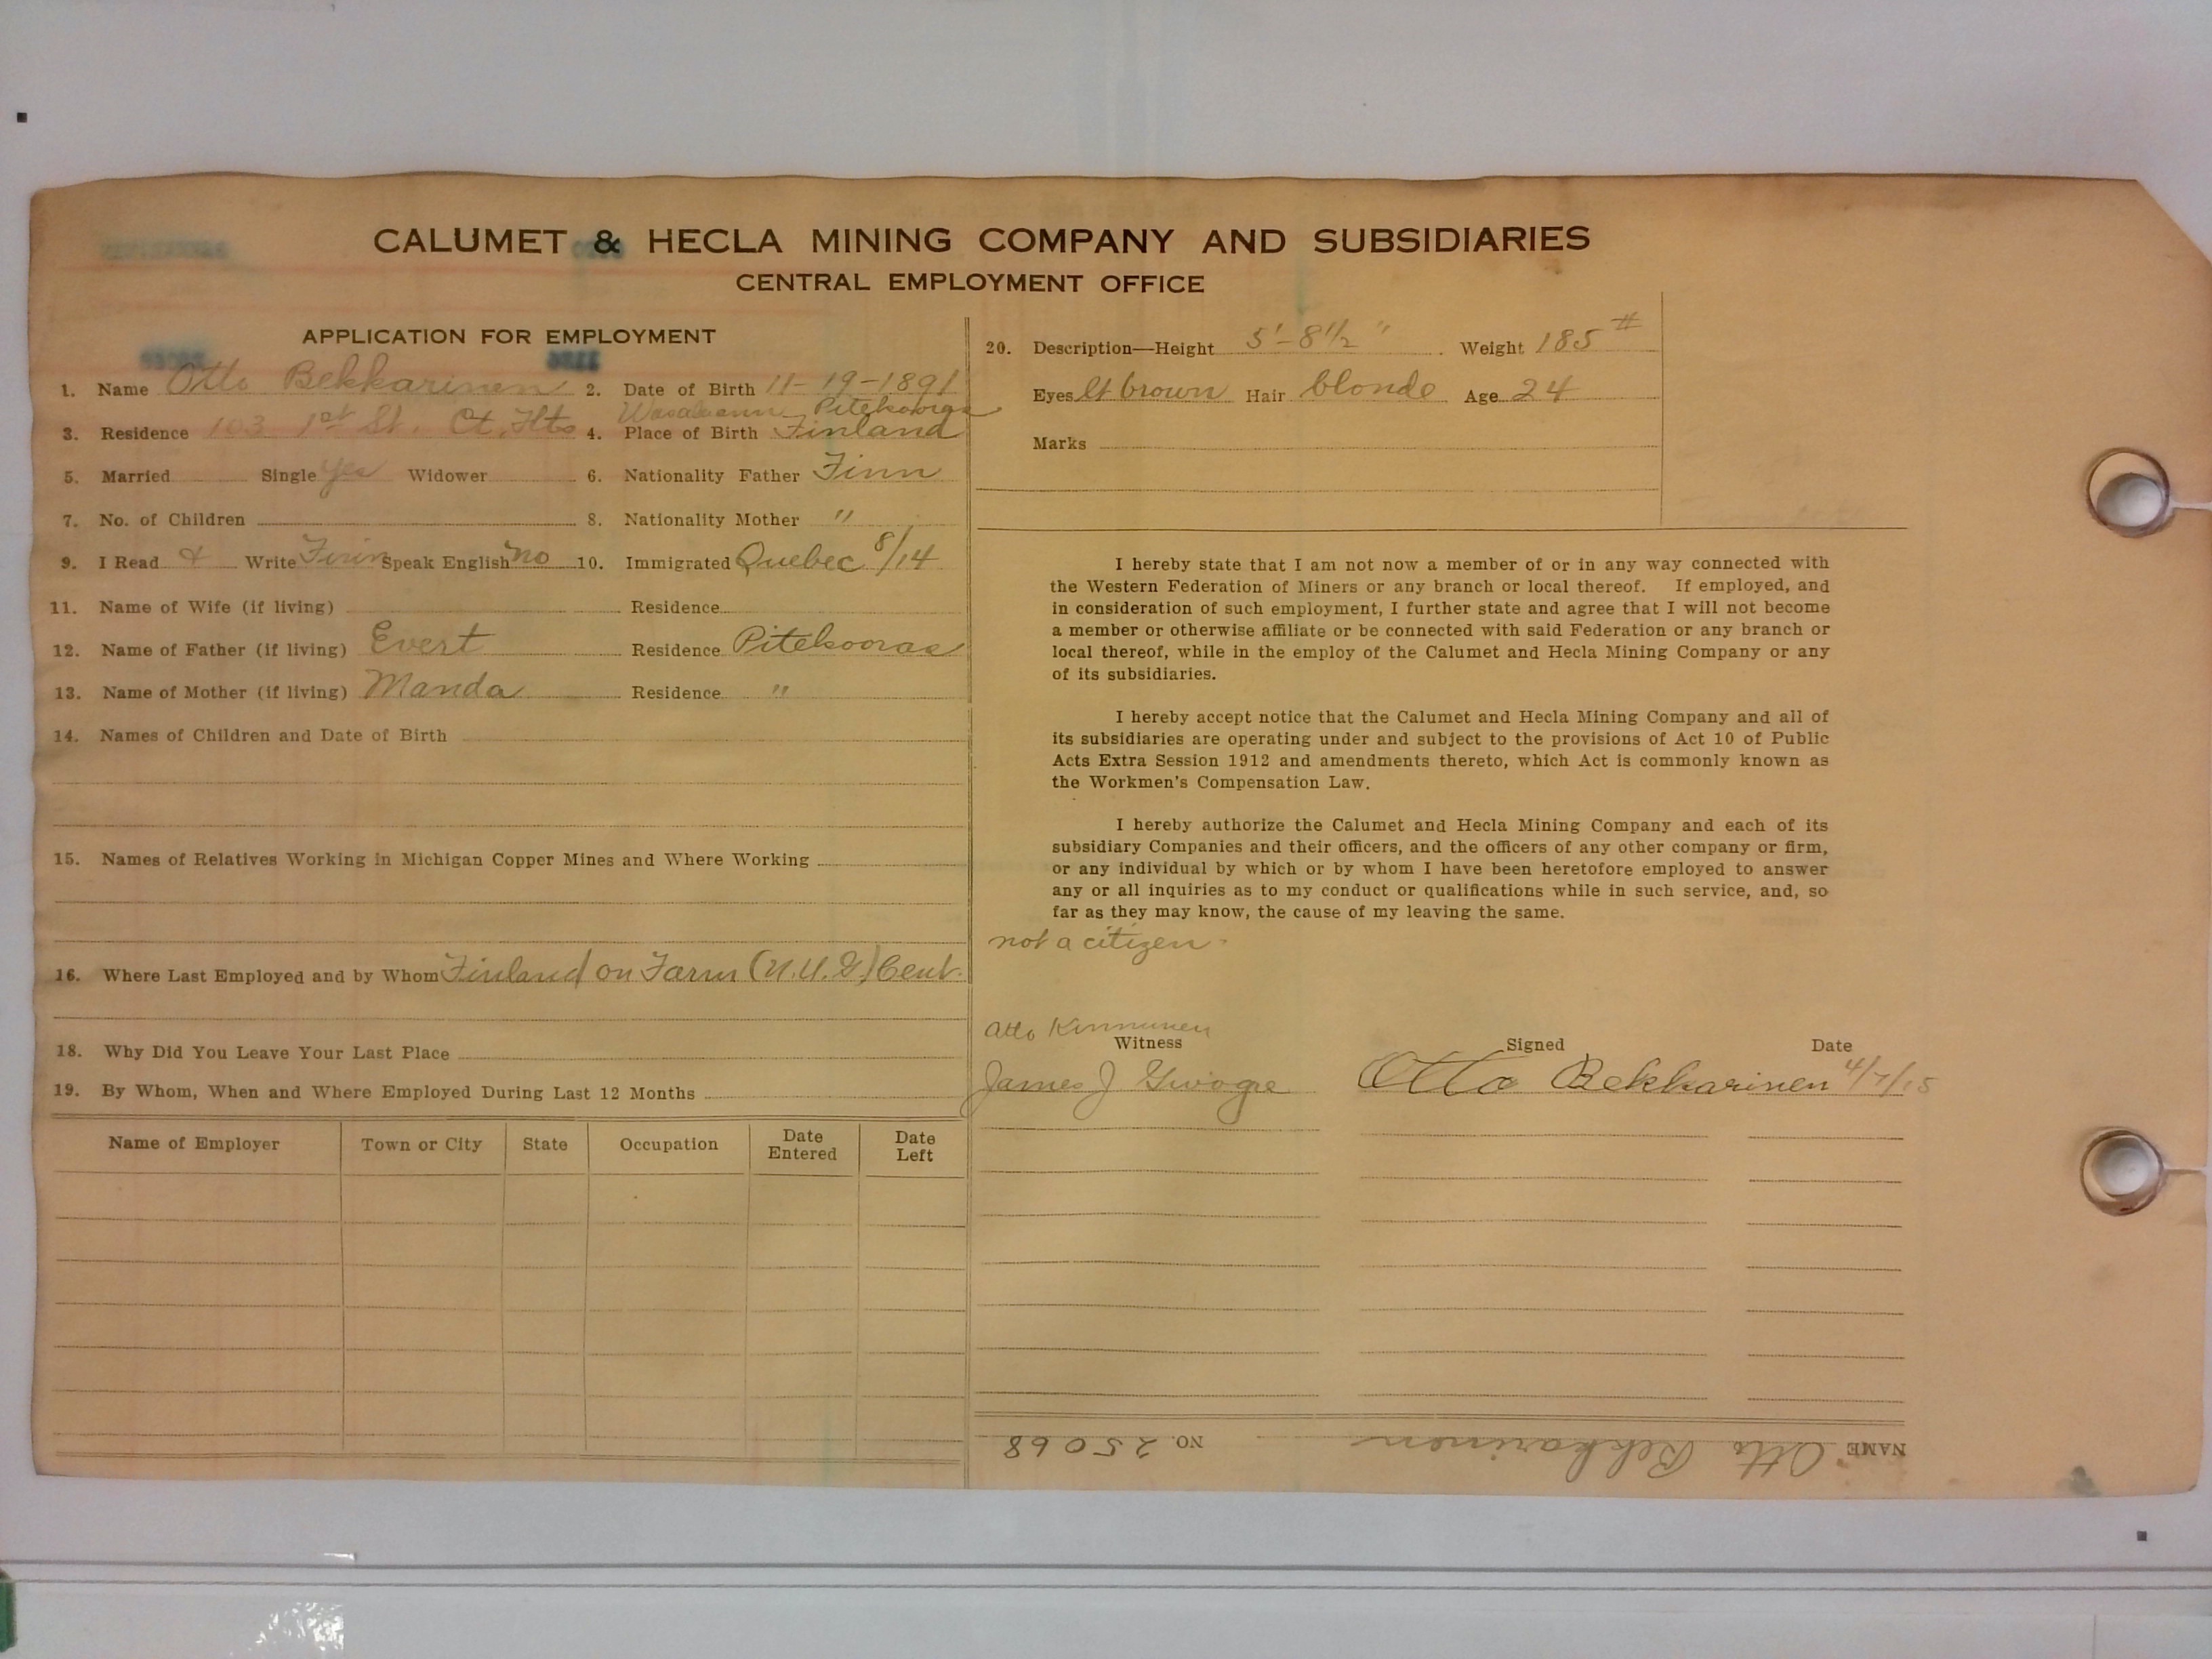 CALUMET & HECLA MINING COMPANY AND SUBSIDIARIES
CENTRAL EMPLOYMENT OFFICE
APPLICATION FOR EMPLOYMENT
1. Name Otto Bekkarinen 2. Date of Birth 11-19-1891
3. Residence 103 1st St. Ct. Hts 4. Place of Birth Finland
5. Married Single yes Widower 6. Nationality Father Finn
7. No. of Children 8. Nationality Mother "
9. I Read & Write Finn Speak English no 10. Immigrated Quebec 8/14
11. Name of Wife (if living) Residence
12. Name of Father (if living) Evert Residence
13. Name of Mother (if living) Manda Residence "
14. Names of Children and Date of Birth
15. Names of Relatives Working in Michigan Copper Mines and Where Working
16. Where Last Employed and by Whom Finland on Farm (N.U.G) Cent.
18. Why Did You Leave Your Last Place
19. By Whom, When and Where Employed During Last 12 Months
Name of Employer Town or City State Occupation Date Entered Date Left
20. Description—Height 5'-8 1/2" Weight 185 #
Eyes lt brown Hair blonde Age 24
Marks
I hereby state that I am not now a member of or in any way connected with
the Western Federation of Miners or any branch or local thereof. If employed, and
in consideration of such employment, I further state and agree that I will not become
a member or otherwise affiliate or be connected with said Federation or any branch or
local thereof, while in the employ of the Calumet and Hecla Mining Company or any
of its subsidiaries.
I hereby accept notice that the Calumet and Hecla Mining Company and all of
its subsidiaries are operating under and subject to the provisions of Act 10 of Public
Acts Extra Session 1912 and amendments thereto, which Act is commonly known as
the Workmen's Compensation Law.
I hereby authorize the Calumet and Hecla Mining Company and each of its
subsidiary Companies and their officers, and the officers of any other company or firm,
or any individual by which or by whom I have been heretofore employed to answer
any or all inquiries as to my conduct or qualifications while in such service, and, so
far as they may know, the cause of my leaving the same.
not a citizen.
Otto Kinnunen
Witness Signed Date
James J Otto Bekkarinen 4/7/15
NAME Otto Bekkarinen NO. 25068